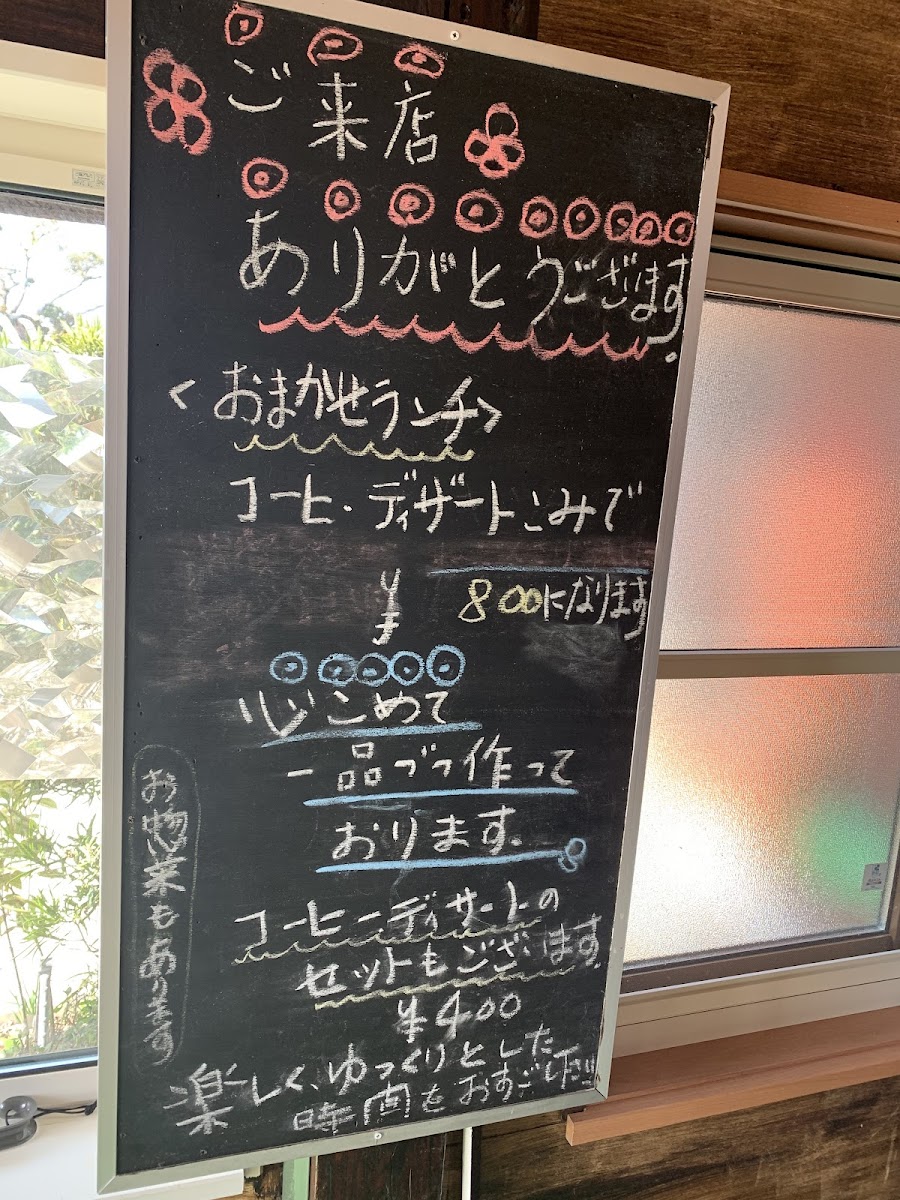 ご来店
ありがとうございます。
<おまかせランチ>
コーヒ・ディザートこみで
¥ 800になります
心こめて
一品づつ作って
おります。
お惣菜もあります
コーヒーディザートの
セットもございます。
¥400
楽しく、ゆっくりとした
時間をおすごし下さい